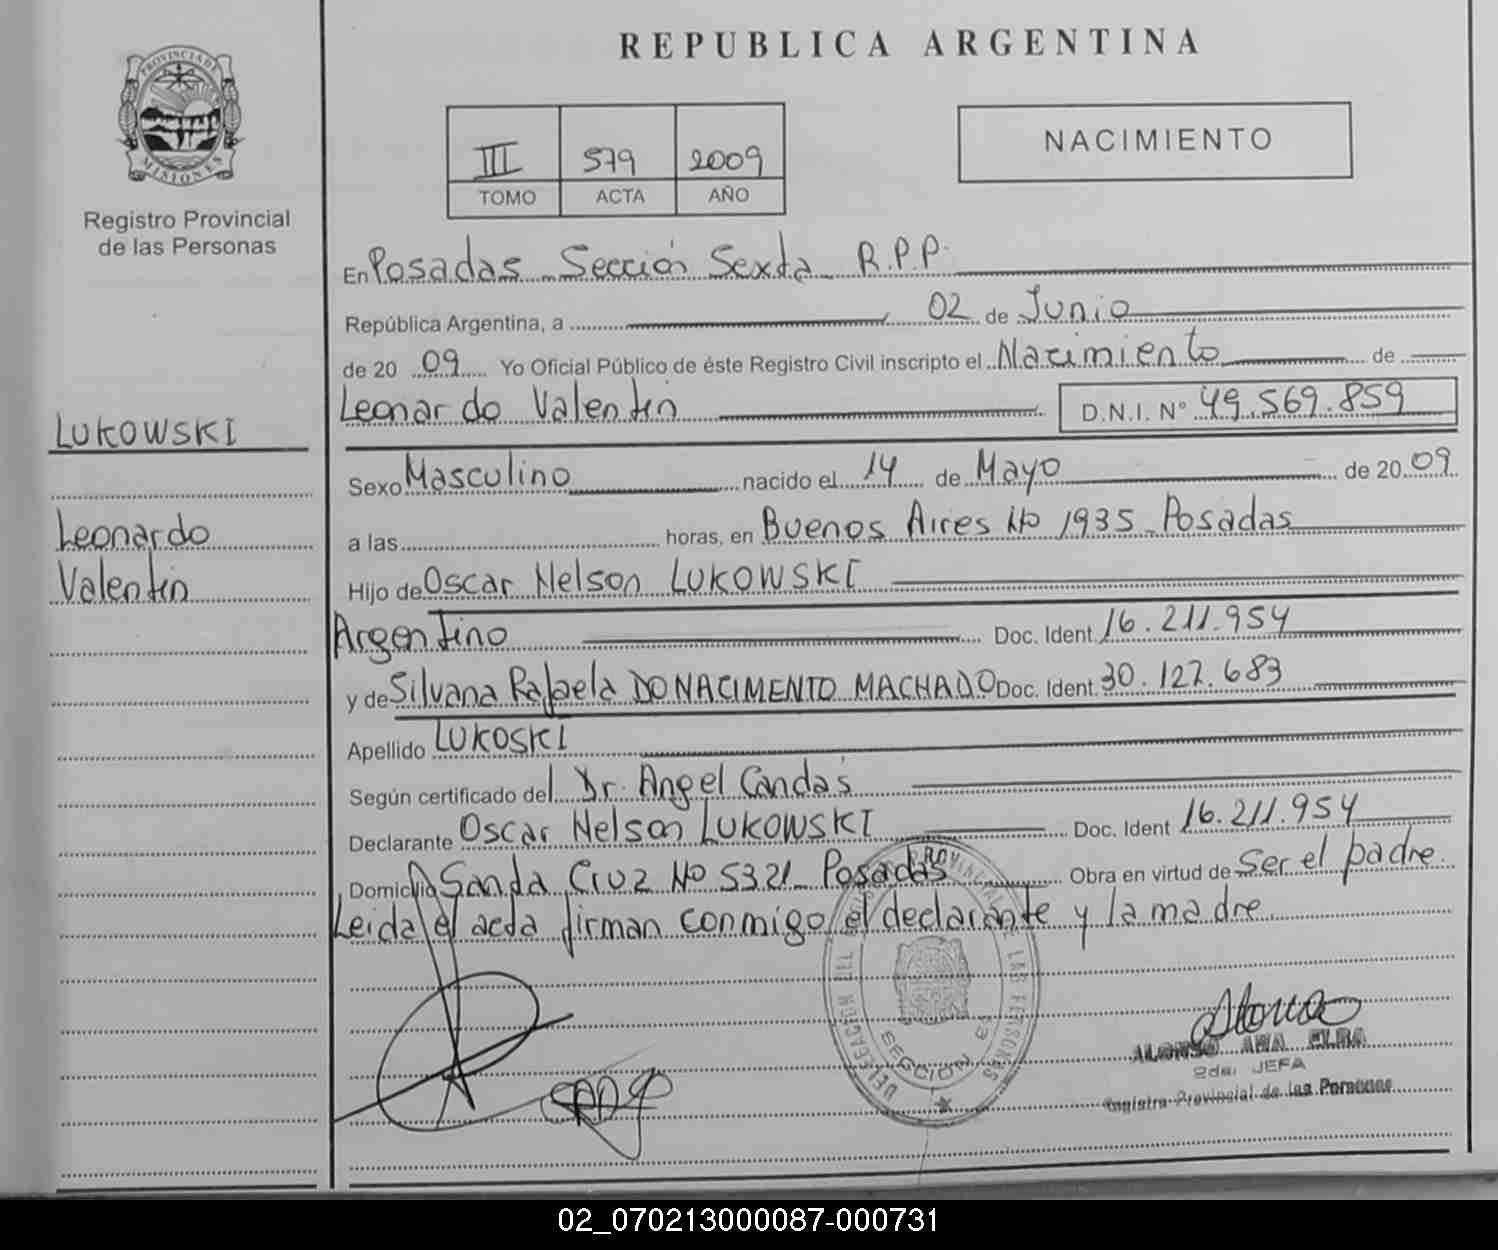 PROVINCIA DE
MISIONES
Registro Provincial
de las Personas
LUKOWSKI
Leonardo
Valentin
REPUBLICA ARGENTINA
III 579 2009
TOMO ACTA AÑO
NACIMIENTO
En Posadas Sección Sexta R.P.P.
República Argentina, a 02 de Junio
de 20 09 Yo Oficial Público de éste Registro Civil inscripto el Nacimiento de
Leonardo Valentin D.N.I. N° 49.569.859
Sexo Masculino nacido el 14 de Mayo de 20 09
a las horas, en Buenos Aires No 1935 Posadas
Hijo de Oscar Nelson LUKOWSKI
Argentino Doc. Ident. 16.211.954
y de Silvana Rafaela DO NACIMENTO MACHADO Doc. Ident. 30.127.683
Apellido LUKOSKI
Según certificado del Dr. Angel Candas
Declarante Oscar Nelson LUKOWSKI Doc. Ident 16.211.954
Domicilio Santa Cruz No 5321 Posadas Obra en virtud de Ser el padre
Leida el acta firman conmigo el declarante y la madre
DELEGACION DEL PROVINCIAL DE LAS PERSONAS
SECCION 6a
ALONSO ANA ELBA
2da. JEFA
Registro Provincial de las Personas
02_070213000087-000731